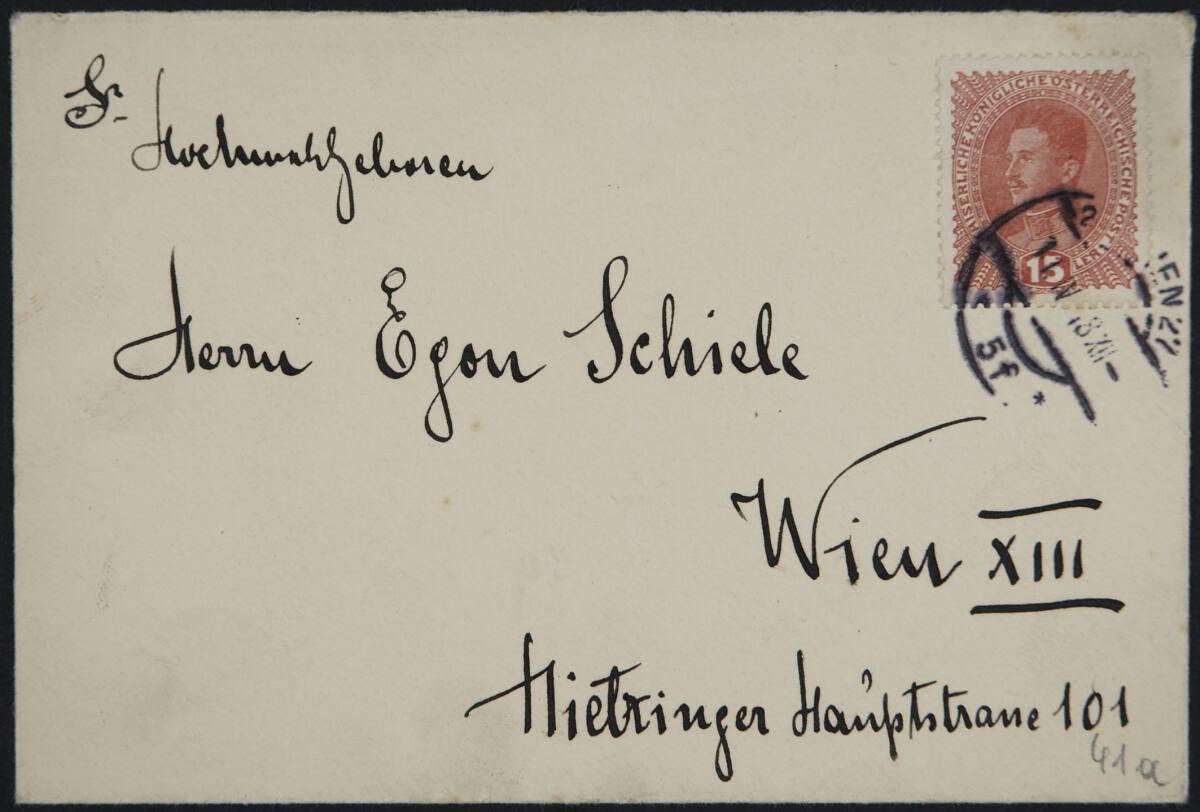 Sr.
Hochwohlgeboren
Herrn Egon Schiele
Wien XIII
Hietzinger Hauptstrasse 101
41a
KAISERLICHE KÖNIGLICHE ÖSTERREICHISCHE POST
15
5f *